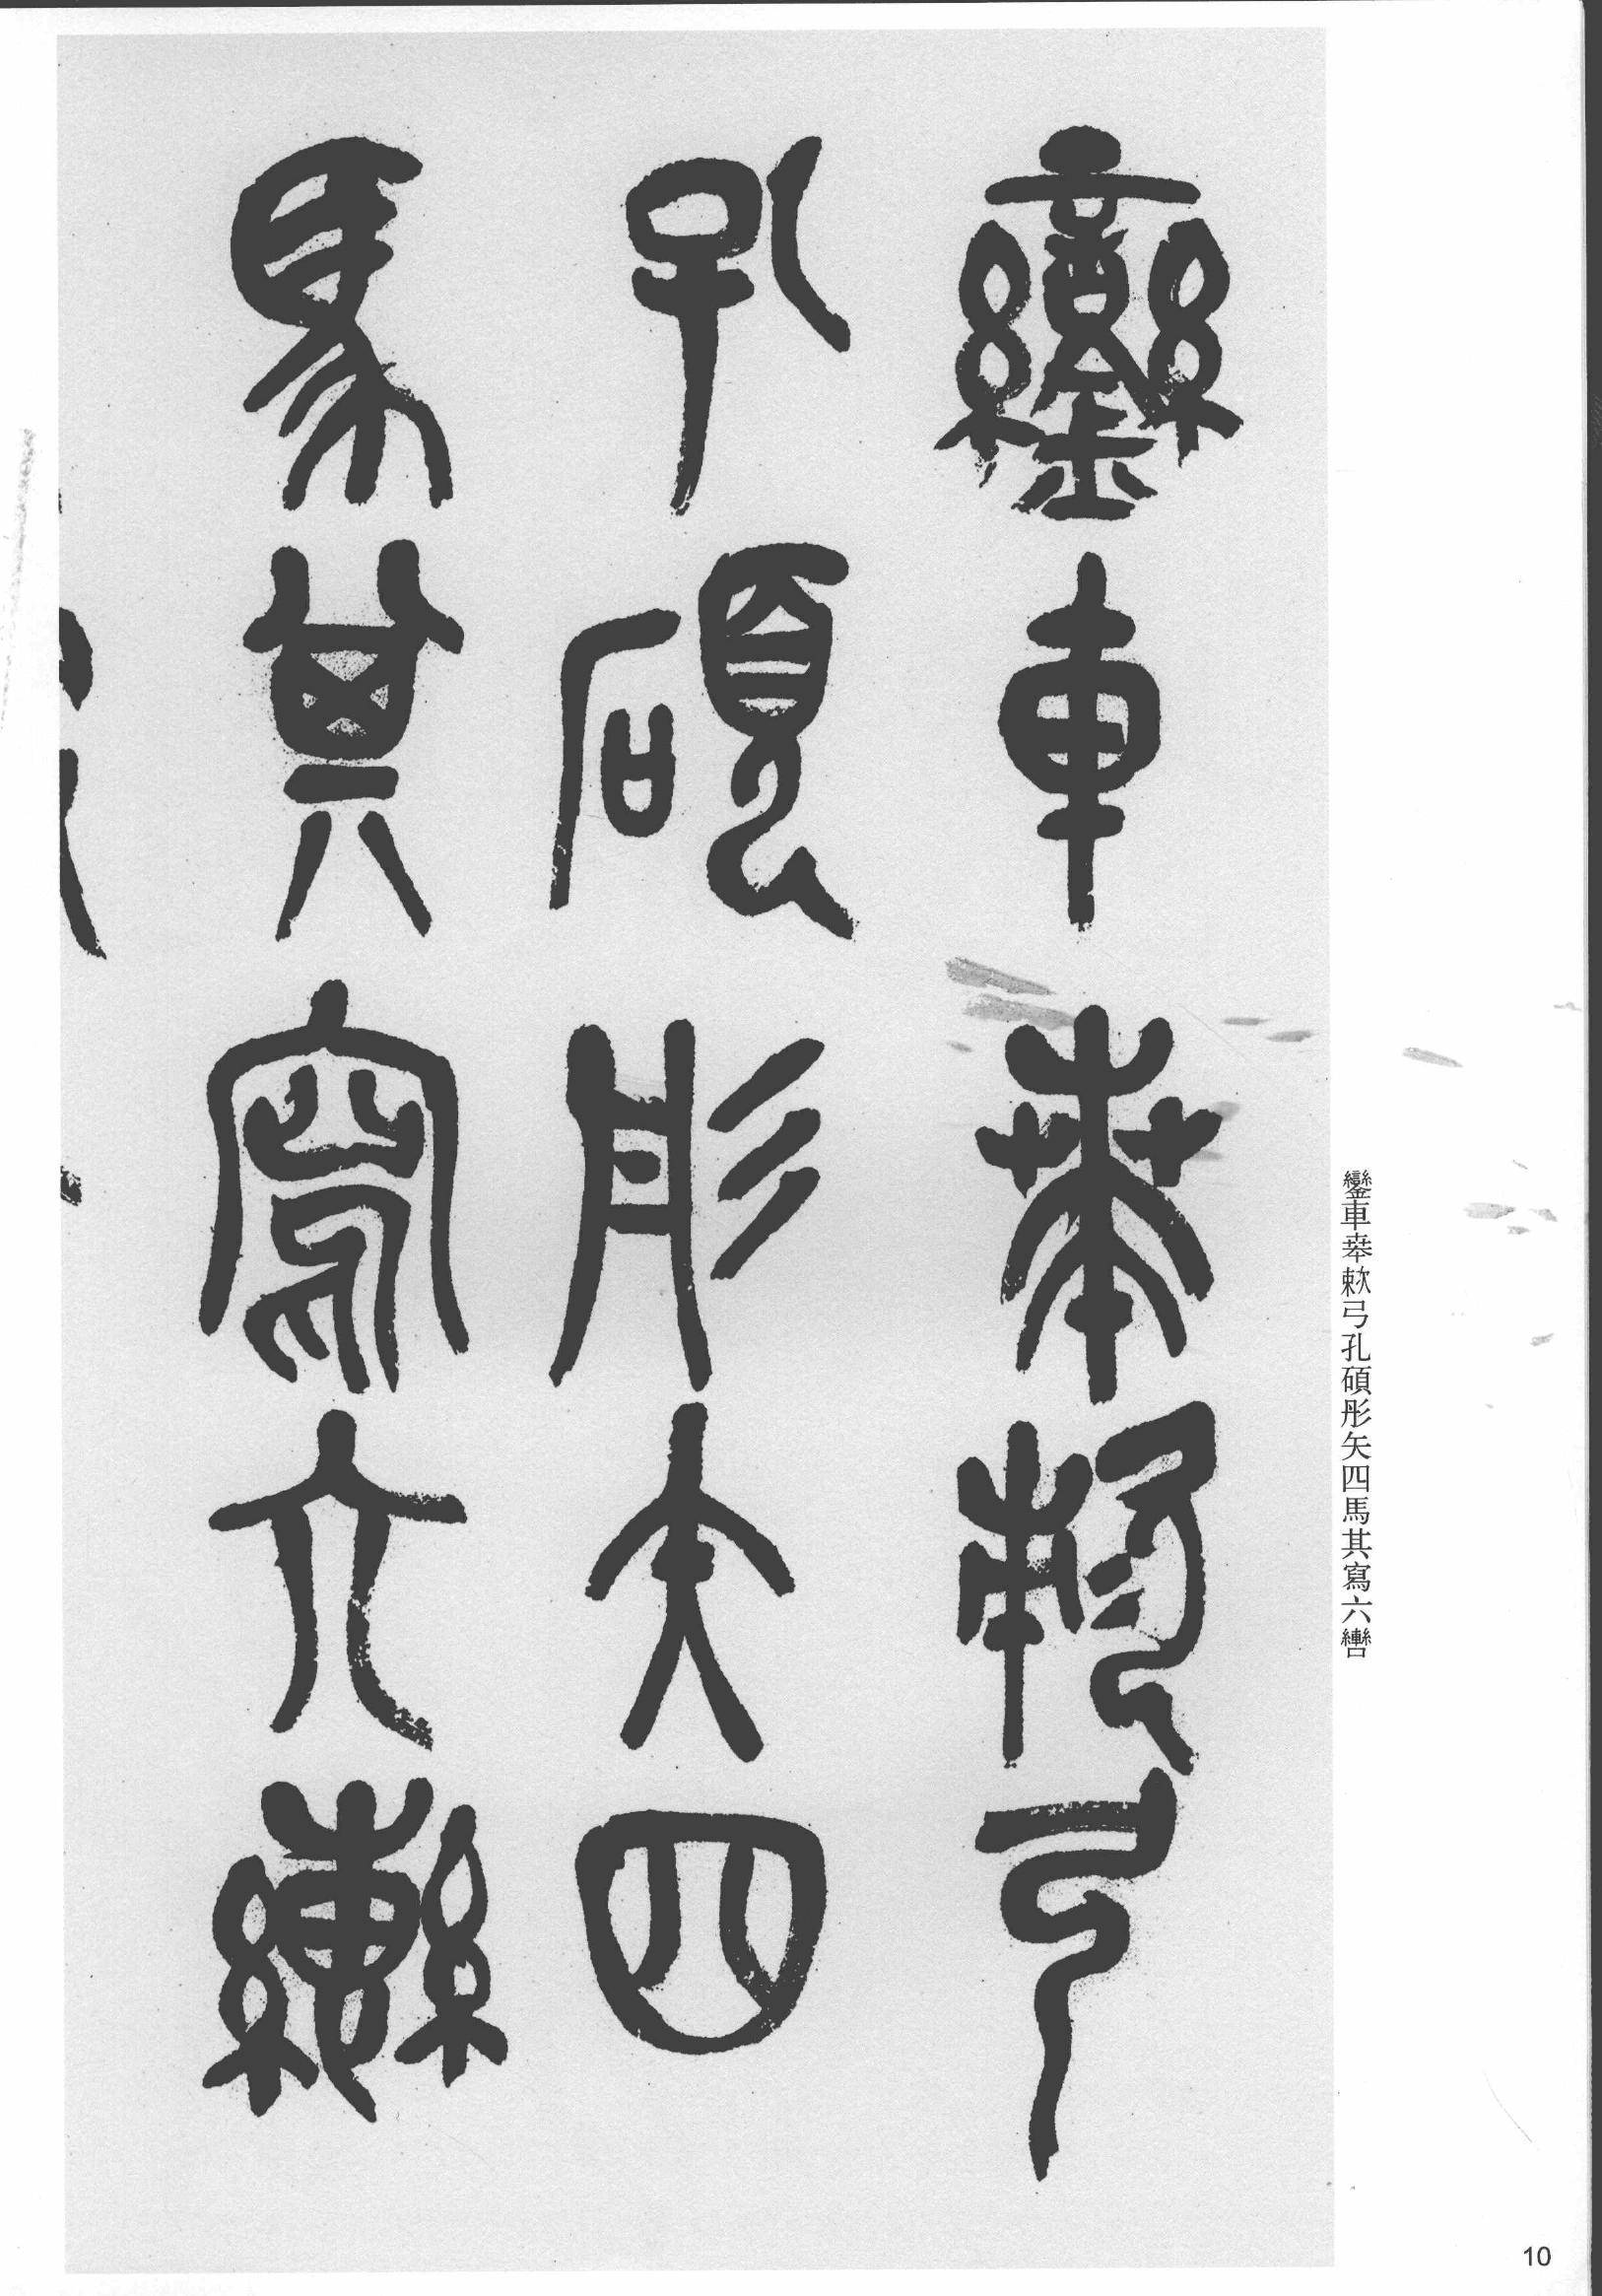 鑾車𠦪欶弓
孔碩彤矢四
馬其寫六轡
鑾車𠦪欶弓孔碩彤矢四馬其寫六轡
10